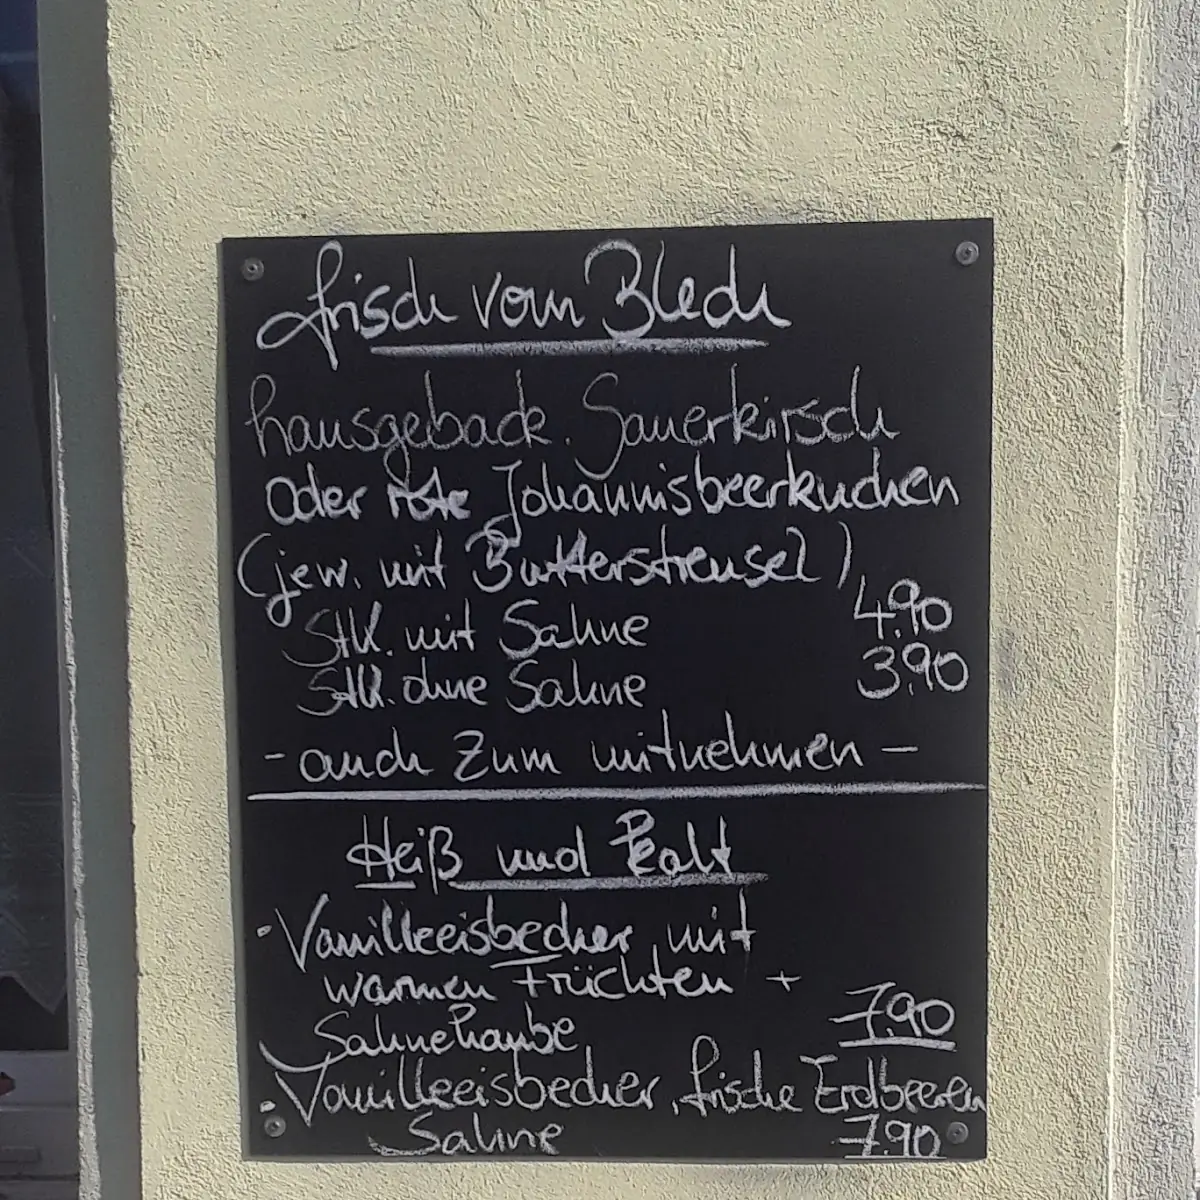 frisch vom Blech
hausgeback. Sauerkirsch
oder rote Johannisbeerkuchen
(jew. mit Butterstreusel)
Stk. mit Sahne 4.90
Stk. ohne Sahne 3.90
- auch zum mitnehmen -
Heiß und Kalt
· Vanilleeisbecher mit
warmen Früchten +
Sahnehaube 7.90
· Vanilleeisbecher, frische Erdbeeren
Sahne 7.90